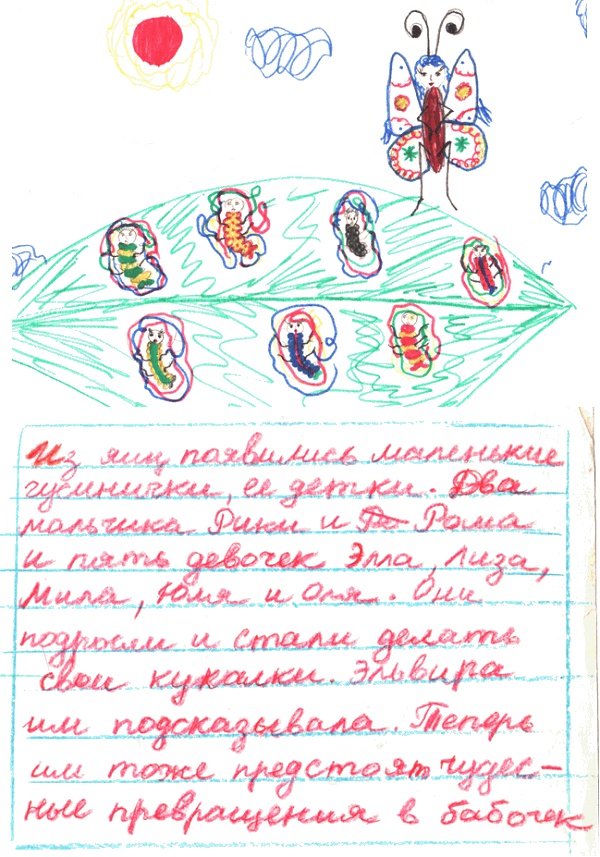 Из яиц появились маленькие
гусинички, ее детки. Два
мальчика Рики и Рома
и пять девочек Элла, Лиза,
Мила, Юля и Оля. Они
подросли и стали делать
свои куколки. Эльвира
им подсказывала. Теперь
им тоже предстоят чудес-
ные превращения в бабочек